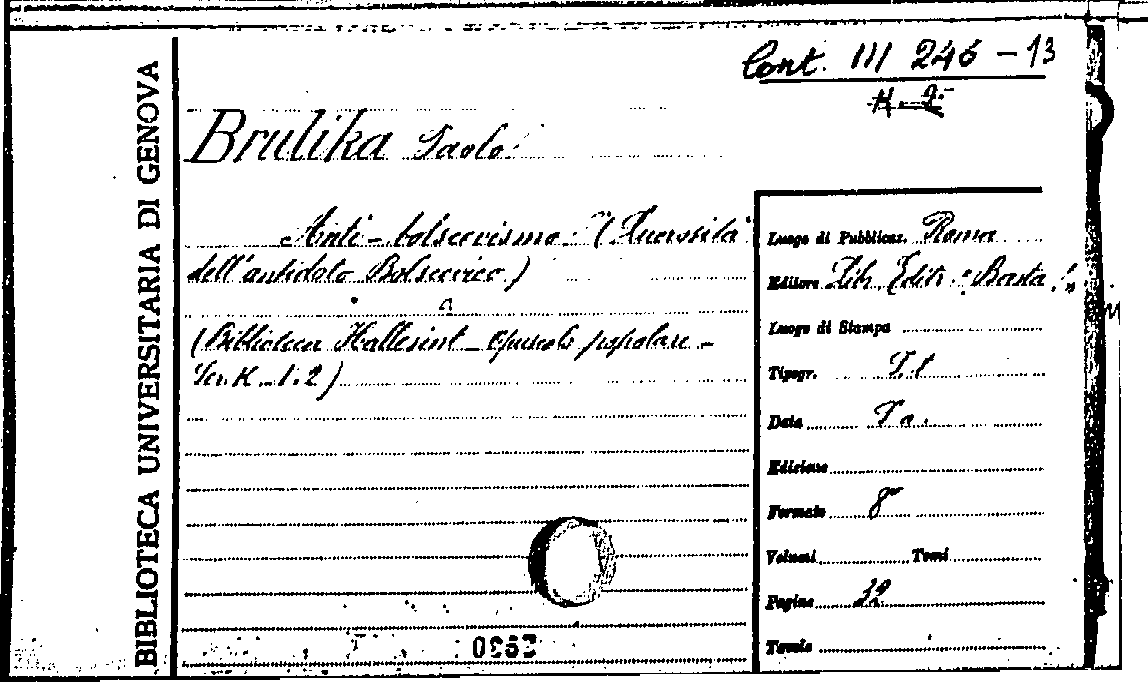 BIBLIOTECA UNIVERSITARIA DI GENOVA
Cont. III 246 - 13
Brulika Paolo
Anti-bolscevismo (
dell'antidoto Bolscevico)
(Biblioteca Hallesint - Opuscolo popolare -
Ser. K - 1. 2)
Luogo di Pubblicaz. Roma
Editore Lib. Editr. "Basta!"
Luogo di Stampa
Tipogr.
Data
Edizione
Formato 8°
Volumi Tomi
Pagine 32
Tavole